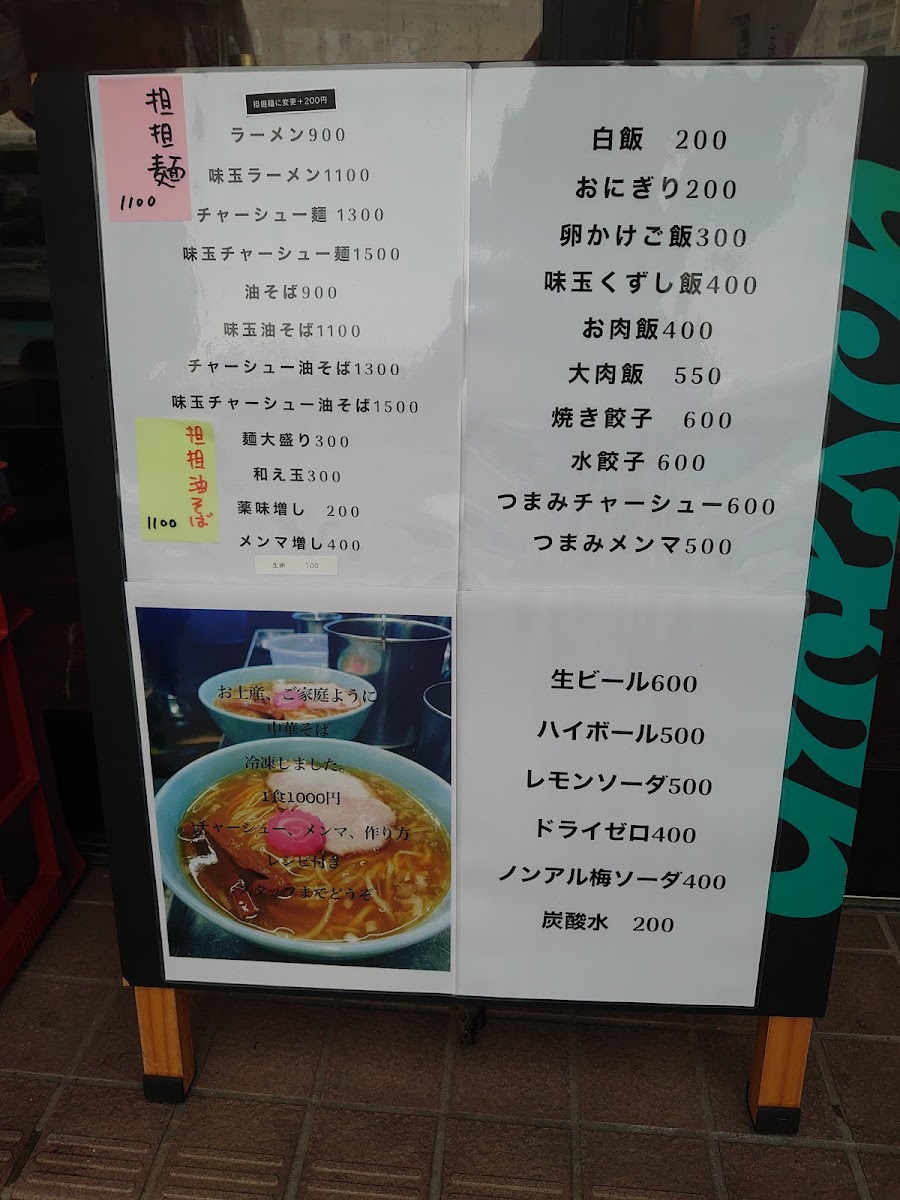 担担麺
1100
担担麺に変更+200円
ラーメン900
味玉ラーメン1100
チャーシュー麺 1300
味玉チャーシュー麺1500
油そば900
味玉油そば1100
チャーシュー油そば1300
味玉チャーシュー油そば1500
麺大盛り300
和え玉300
薬味増し 200
メンマ増し400
生卵 100
担担油そば
1100
白飯 200
おにぎり200
卵かけご飯300
味玉くずし飯400
お肉飯400
大肉飯 550
焼き餃子 600
水餃子 600
つまみチャーシュー600
つまみメンマ500
お土産、ご家庭ように
中華そば
冷凍しました。
1食1000円
チャーシュー、メンマ、作り方
レシピ付き
スタッフまでどうぞ
生ビール600
ハイボール500
レモンソーダ500
ドライゼロ400
ノンアル梅ソーダ400
炭酸水 200